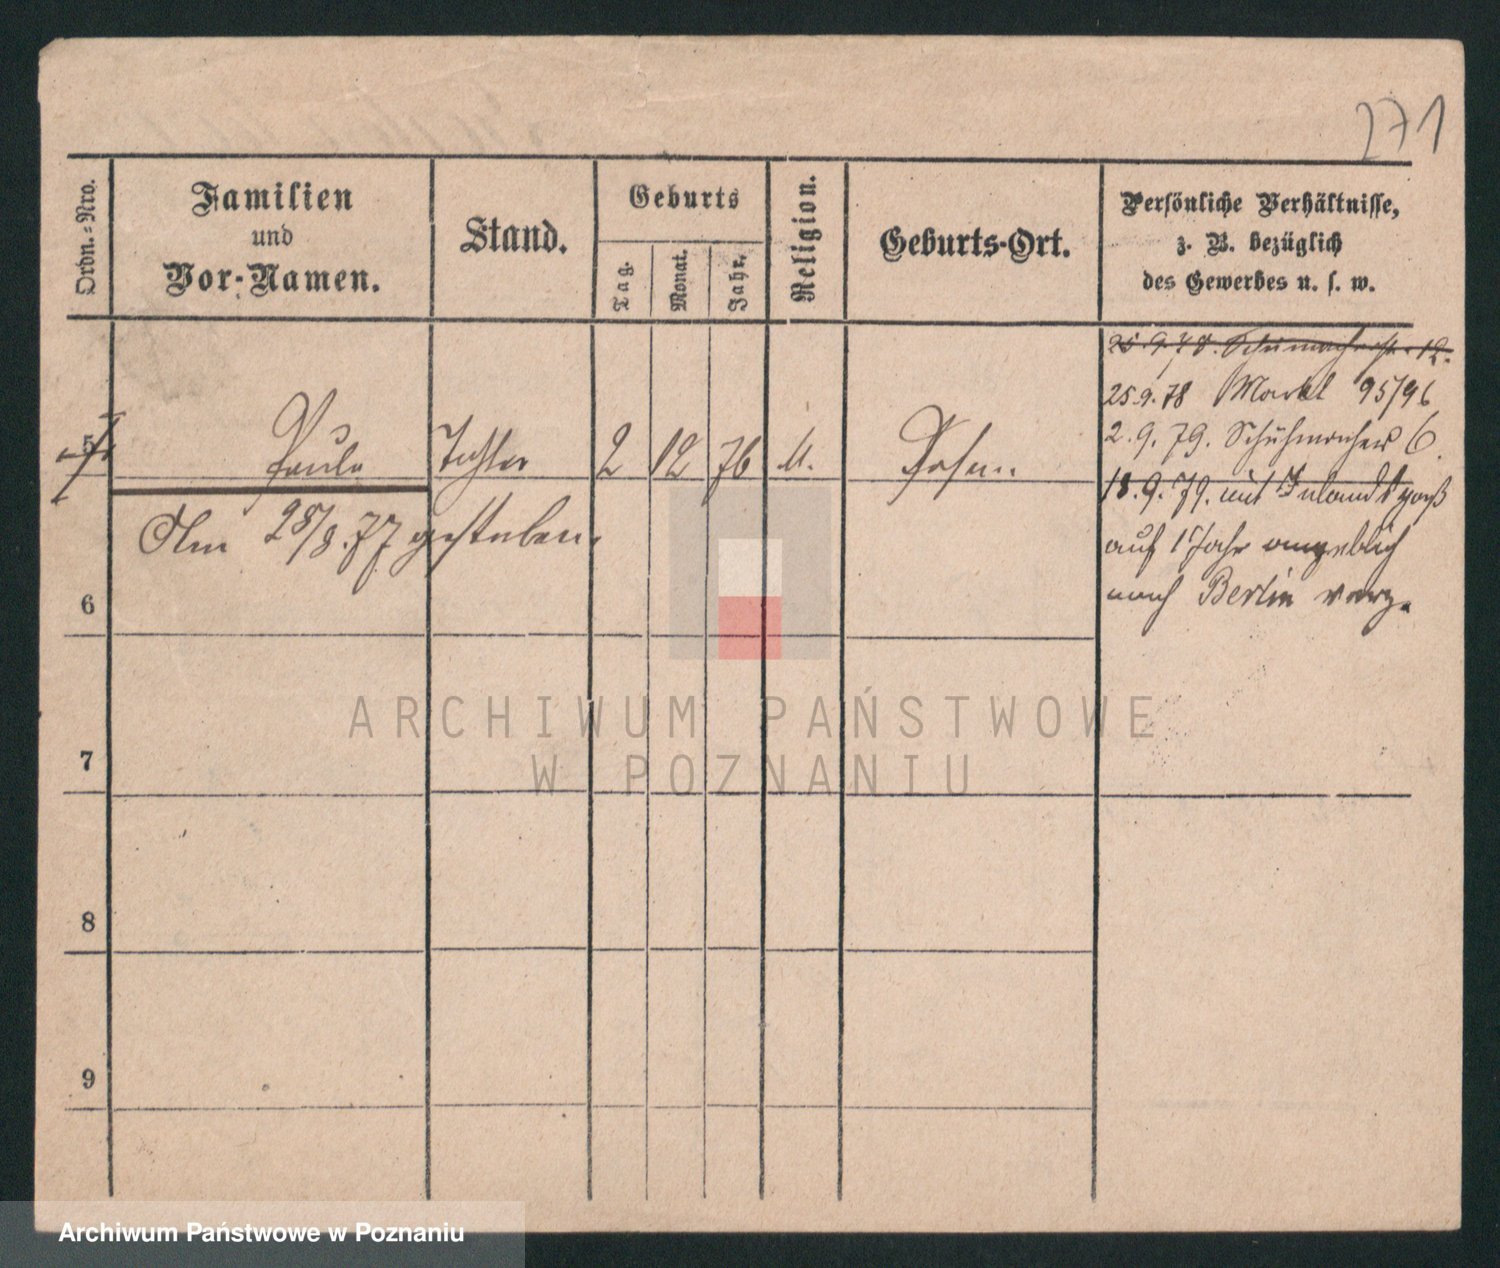 271
Ordn.=Nro.
Familien
und
Vor-Namen.
Stand.
Geburts
Tag.
Monat.
Jahr.
Religion.
Geburts-Ort.
Persönliche Verhältnisse,
z. B. bezüglich
des Gewerbes u. s. w.
25.9.78. Schumacherstr. 12.
25.9.78 Markt 95/96
2.9.79. Schuhmacher 6.
5 Paula Tochter 2 12 76 Posen
18.9.79. mit Inlandspaß
Am 28/8.77 gestorben.
auf 1 Jahr angeblich
nach Berlin verz.
6
7
8
9
ARCHIWUM PAŃSTWOWE
W POZNANIU
Archiwum Państwowe w Poznaniu